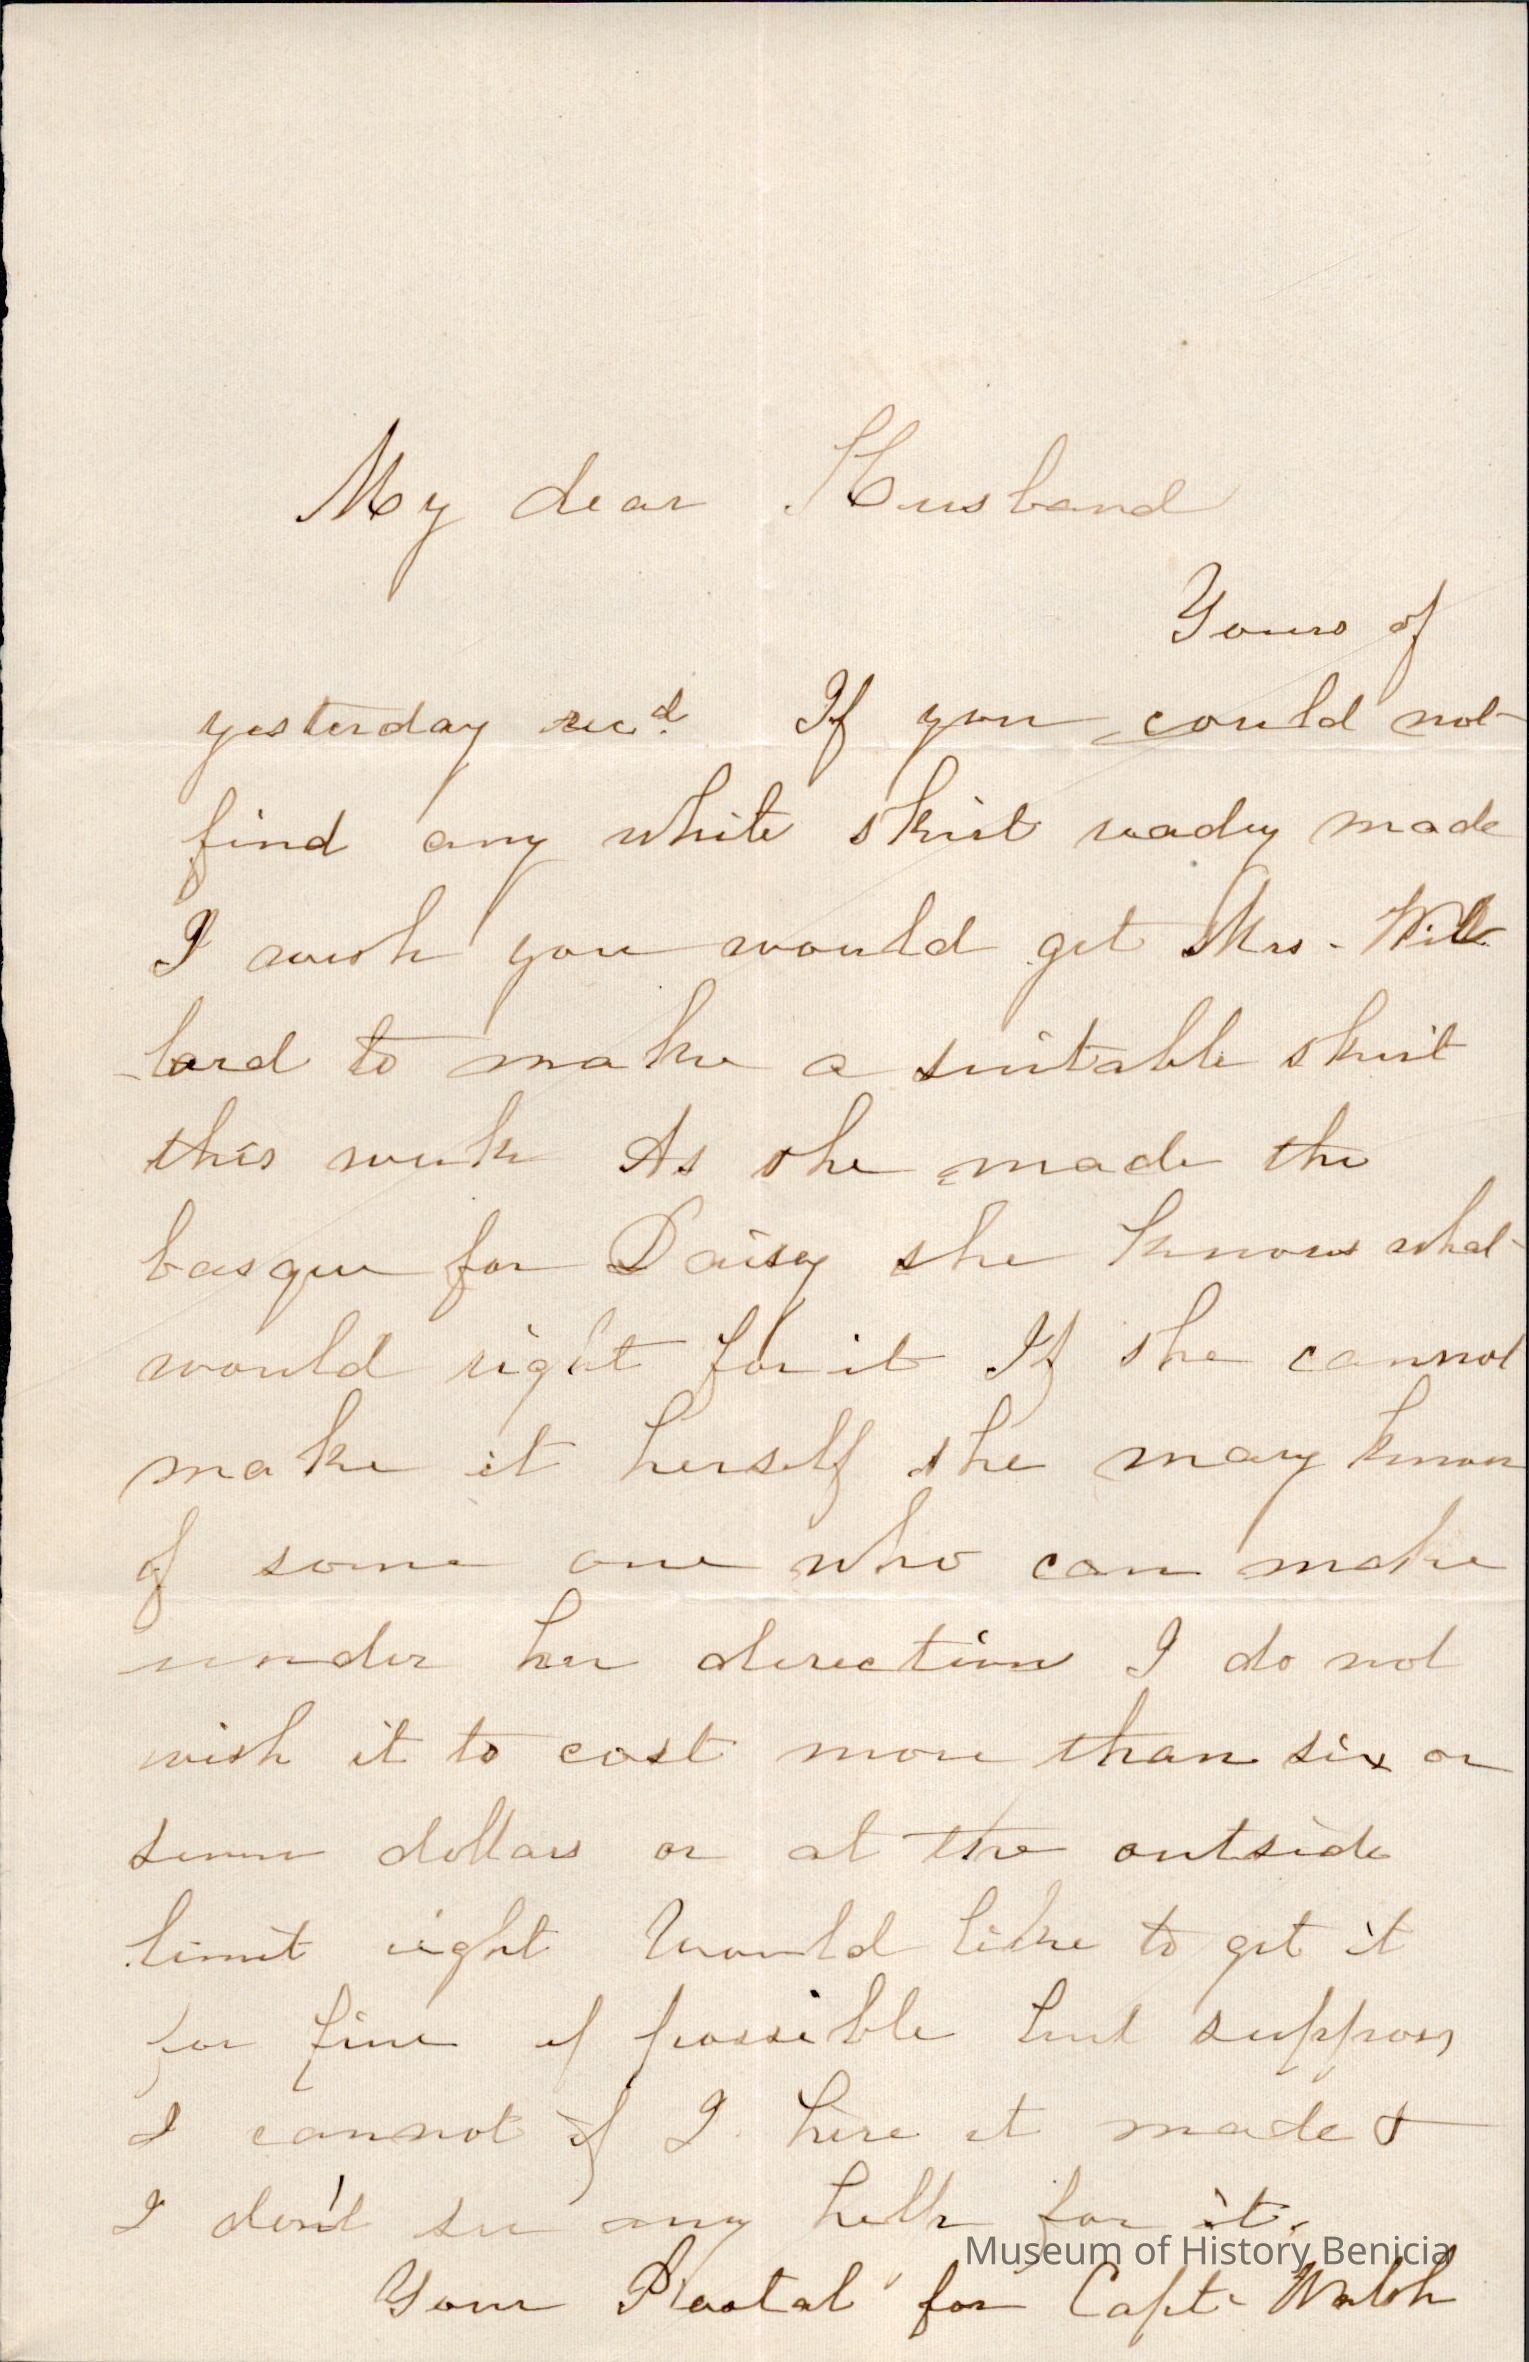 My dear Husband
Yours of
yesterday rec.d If you could not
find any white skirt ready made
I wish you would get Mrs. Wil
lard to make a suitable skirt
this week As she made the
basque for Daisy she knows what
would right for it If she cannot
make it herself she may know
of some one who can make
under her direction I do not
wish it to cost more than six or
seven dollars or at the outside
limit eight Would like to get it
for five if possible but suppose
I cannot if I hire it made &
I don't see any help for it.
Your Postal for Capt. Walsh
Museum of History Benicia